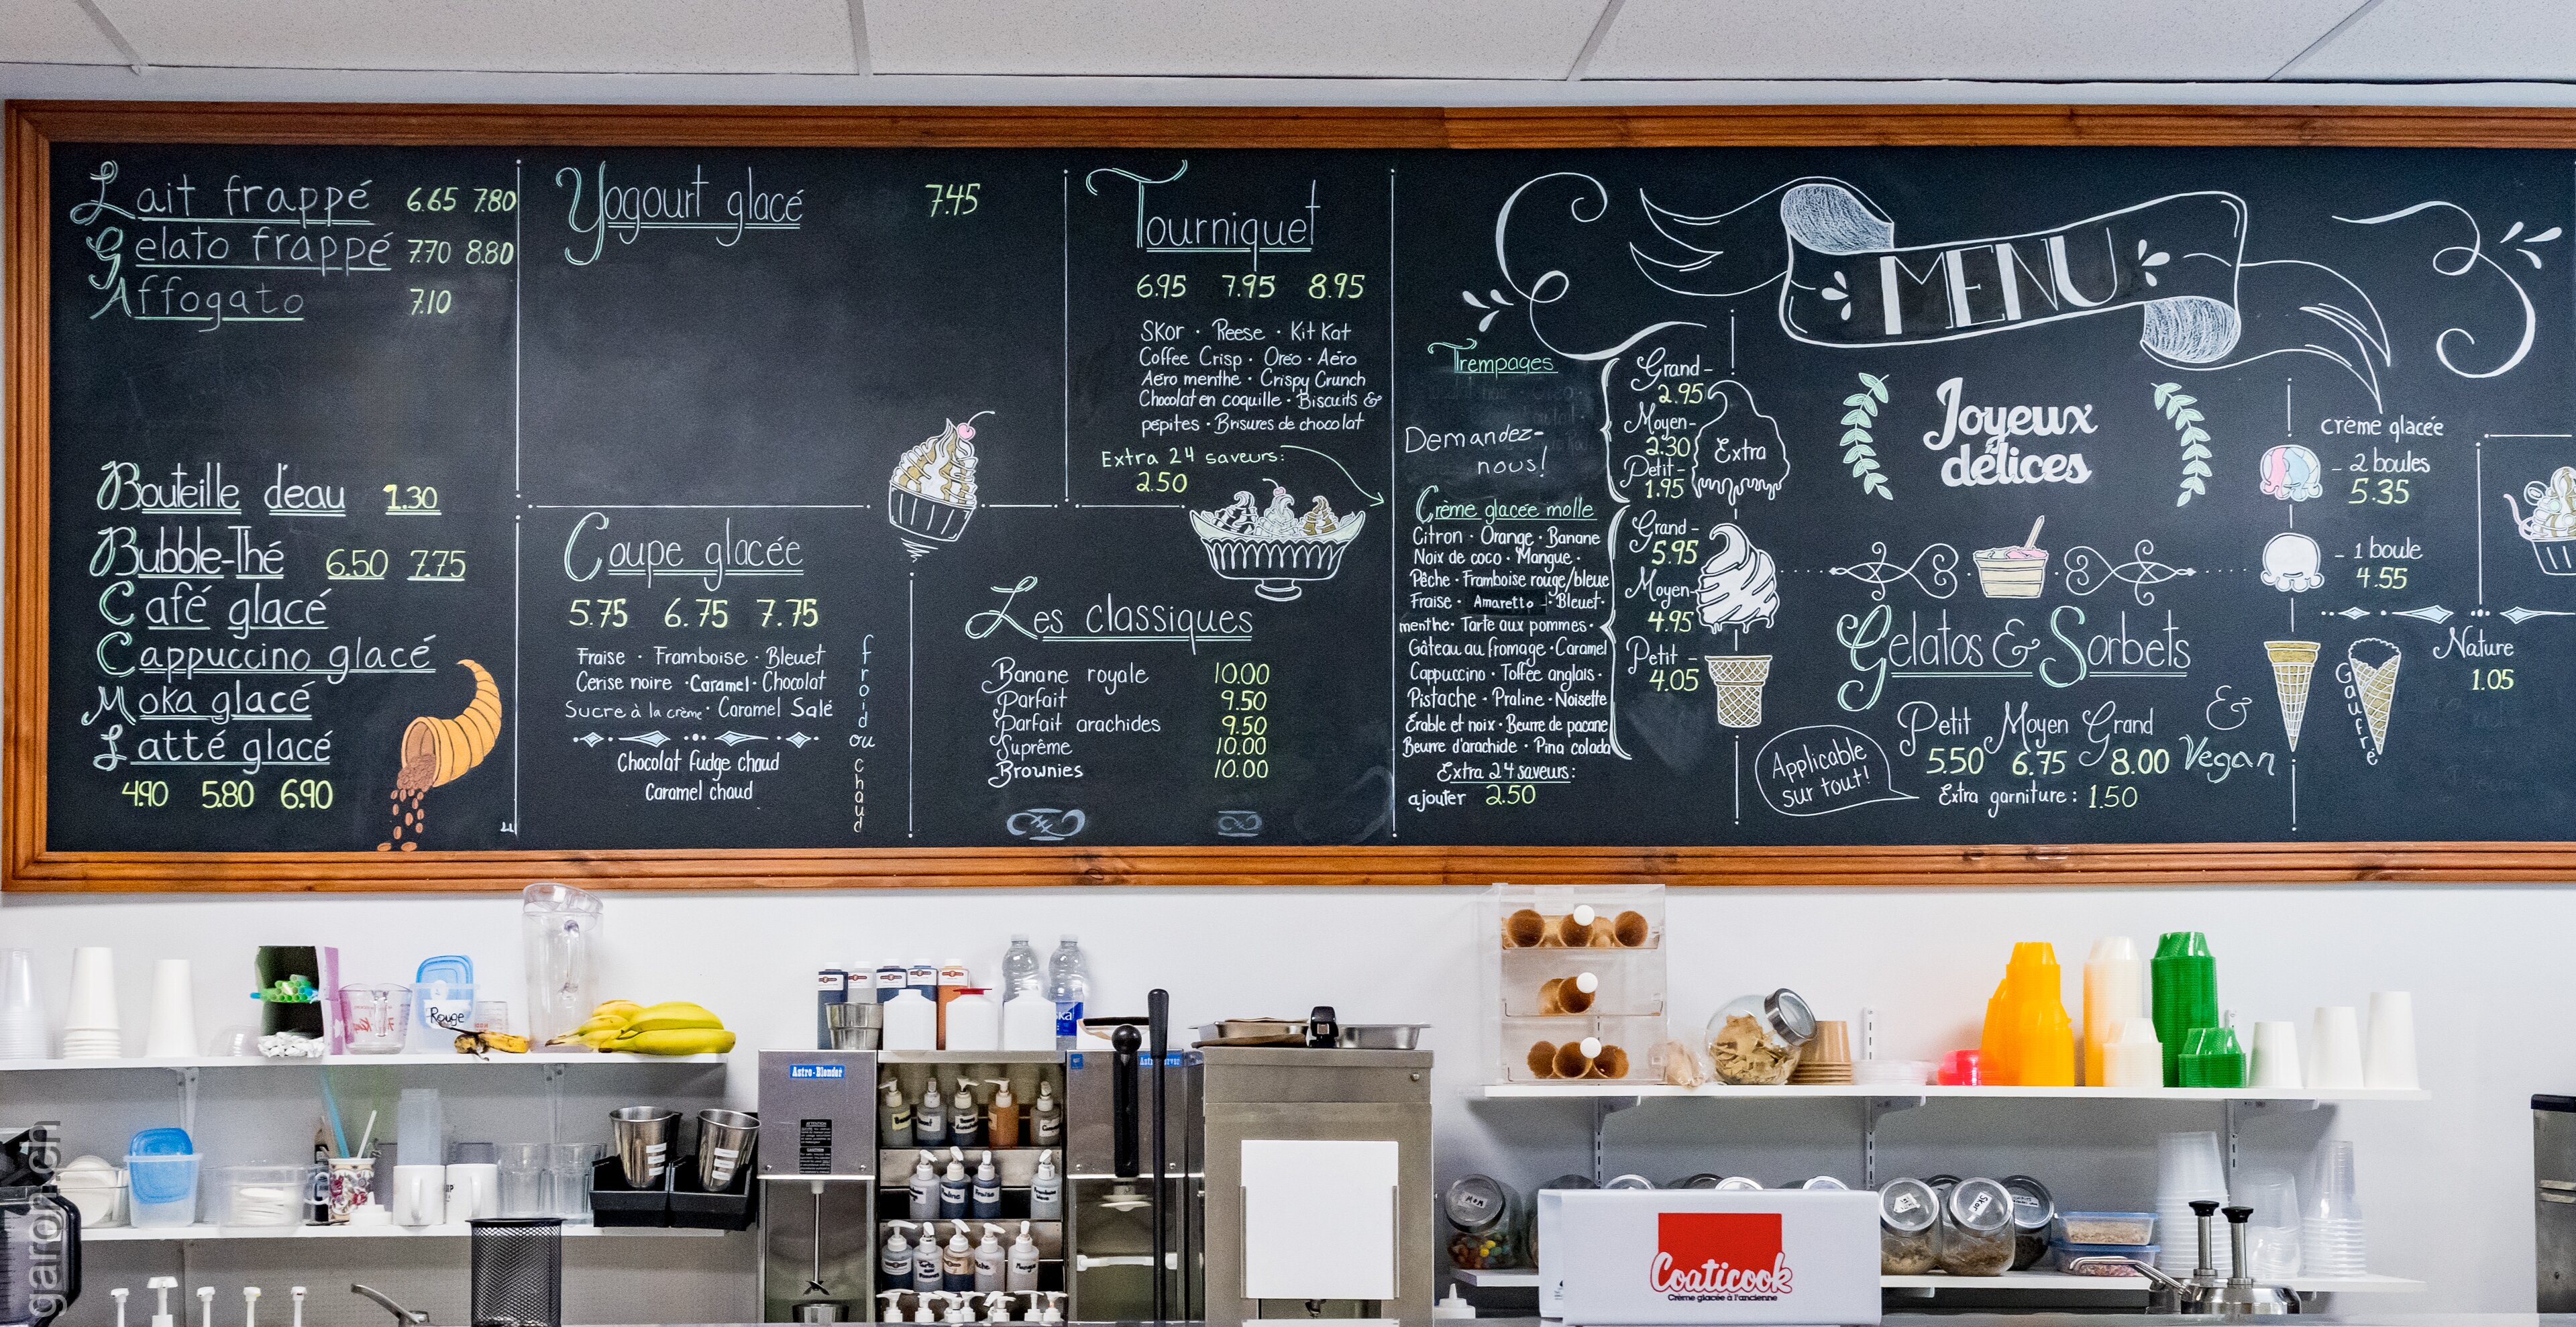 Lait frappé 6.65 7.80
Gelato frappé 7.70 8.80
Affogato 7.10
Bouteille d'eau 1.30
Bubble-Thé 6.50 7.75
Café glacé
Cappuccino glacé
Moka glacé
Latté glacé
4.90 5.80 6.90
Yogourt glacé 7.45
Coupe glacée
5.75 6.75 7.75
Fraise · Framboise · Bleuet
Cerise noire · Caramel · Chocolat
Sucre à la crème · Caramel Salé
Chocolat fudge chaud
Caramel chaud
froid ou chaud
Tourniquet
6.95 7.95 8.95
Skor · Reese · Kit Kat
Coffee Crisp · Oréo · Aéro
Aéro menthe · Crispy Crunch
Chocolat en coquille · Biscuits &
pépites · Brisures de chocolat
Extra 24 saveurs:
2.50
Les classiques
Banane royale 10.00
Parfait 9.50
Parfait arachides 9.50
Suprême 10.00
Brownies 10.00
Trempages
Demandez-
nous!
Grand - 2.95
Moyen - 2.30
Petit - 1.95
Extra
Crème glacée molle
Citron · Orange · Banane
Noix de coco · Mangue ·
Pêche · Framboise rouge/bleue
Fraise · Amaretto · Bleuet ·
menthe · Tarte aux pommes ·
Gâteau au fromage · Caramel
Cappuccino · Toffee anglais ·
Pistache · Praline · Noisette
Érable et noix · Beurre de pacane
Beurre d'arachide · Pina colada
Extra 24 saveurs:
ajouter 2.50
Grand - 5.95
Moyen - 4.95
Petit - 4.05
MENU
Joyeux
délices
Gelatos & Sorbets
& Vegan
Petit Moyen Grand
5.50 6.75 8.00
Extra garniture: 1.50
Applicable
sur tout!
crème glacée
- 2 boules
5.35
- 1 boule
4.55
Gaufré
Nature
1.05
Rouge
Astro-Blender
Coaticook
Crème glacée à l'ancienne
garon.ch